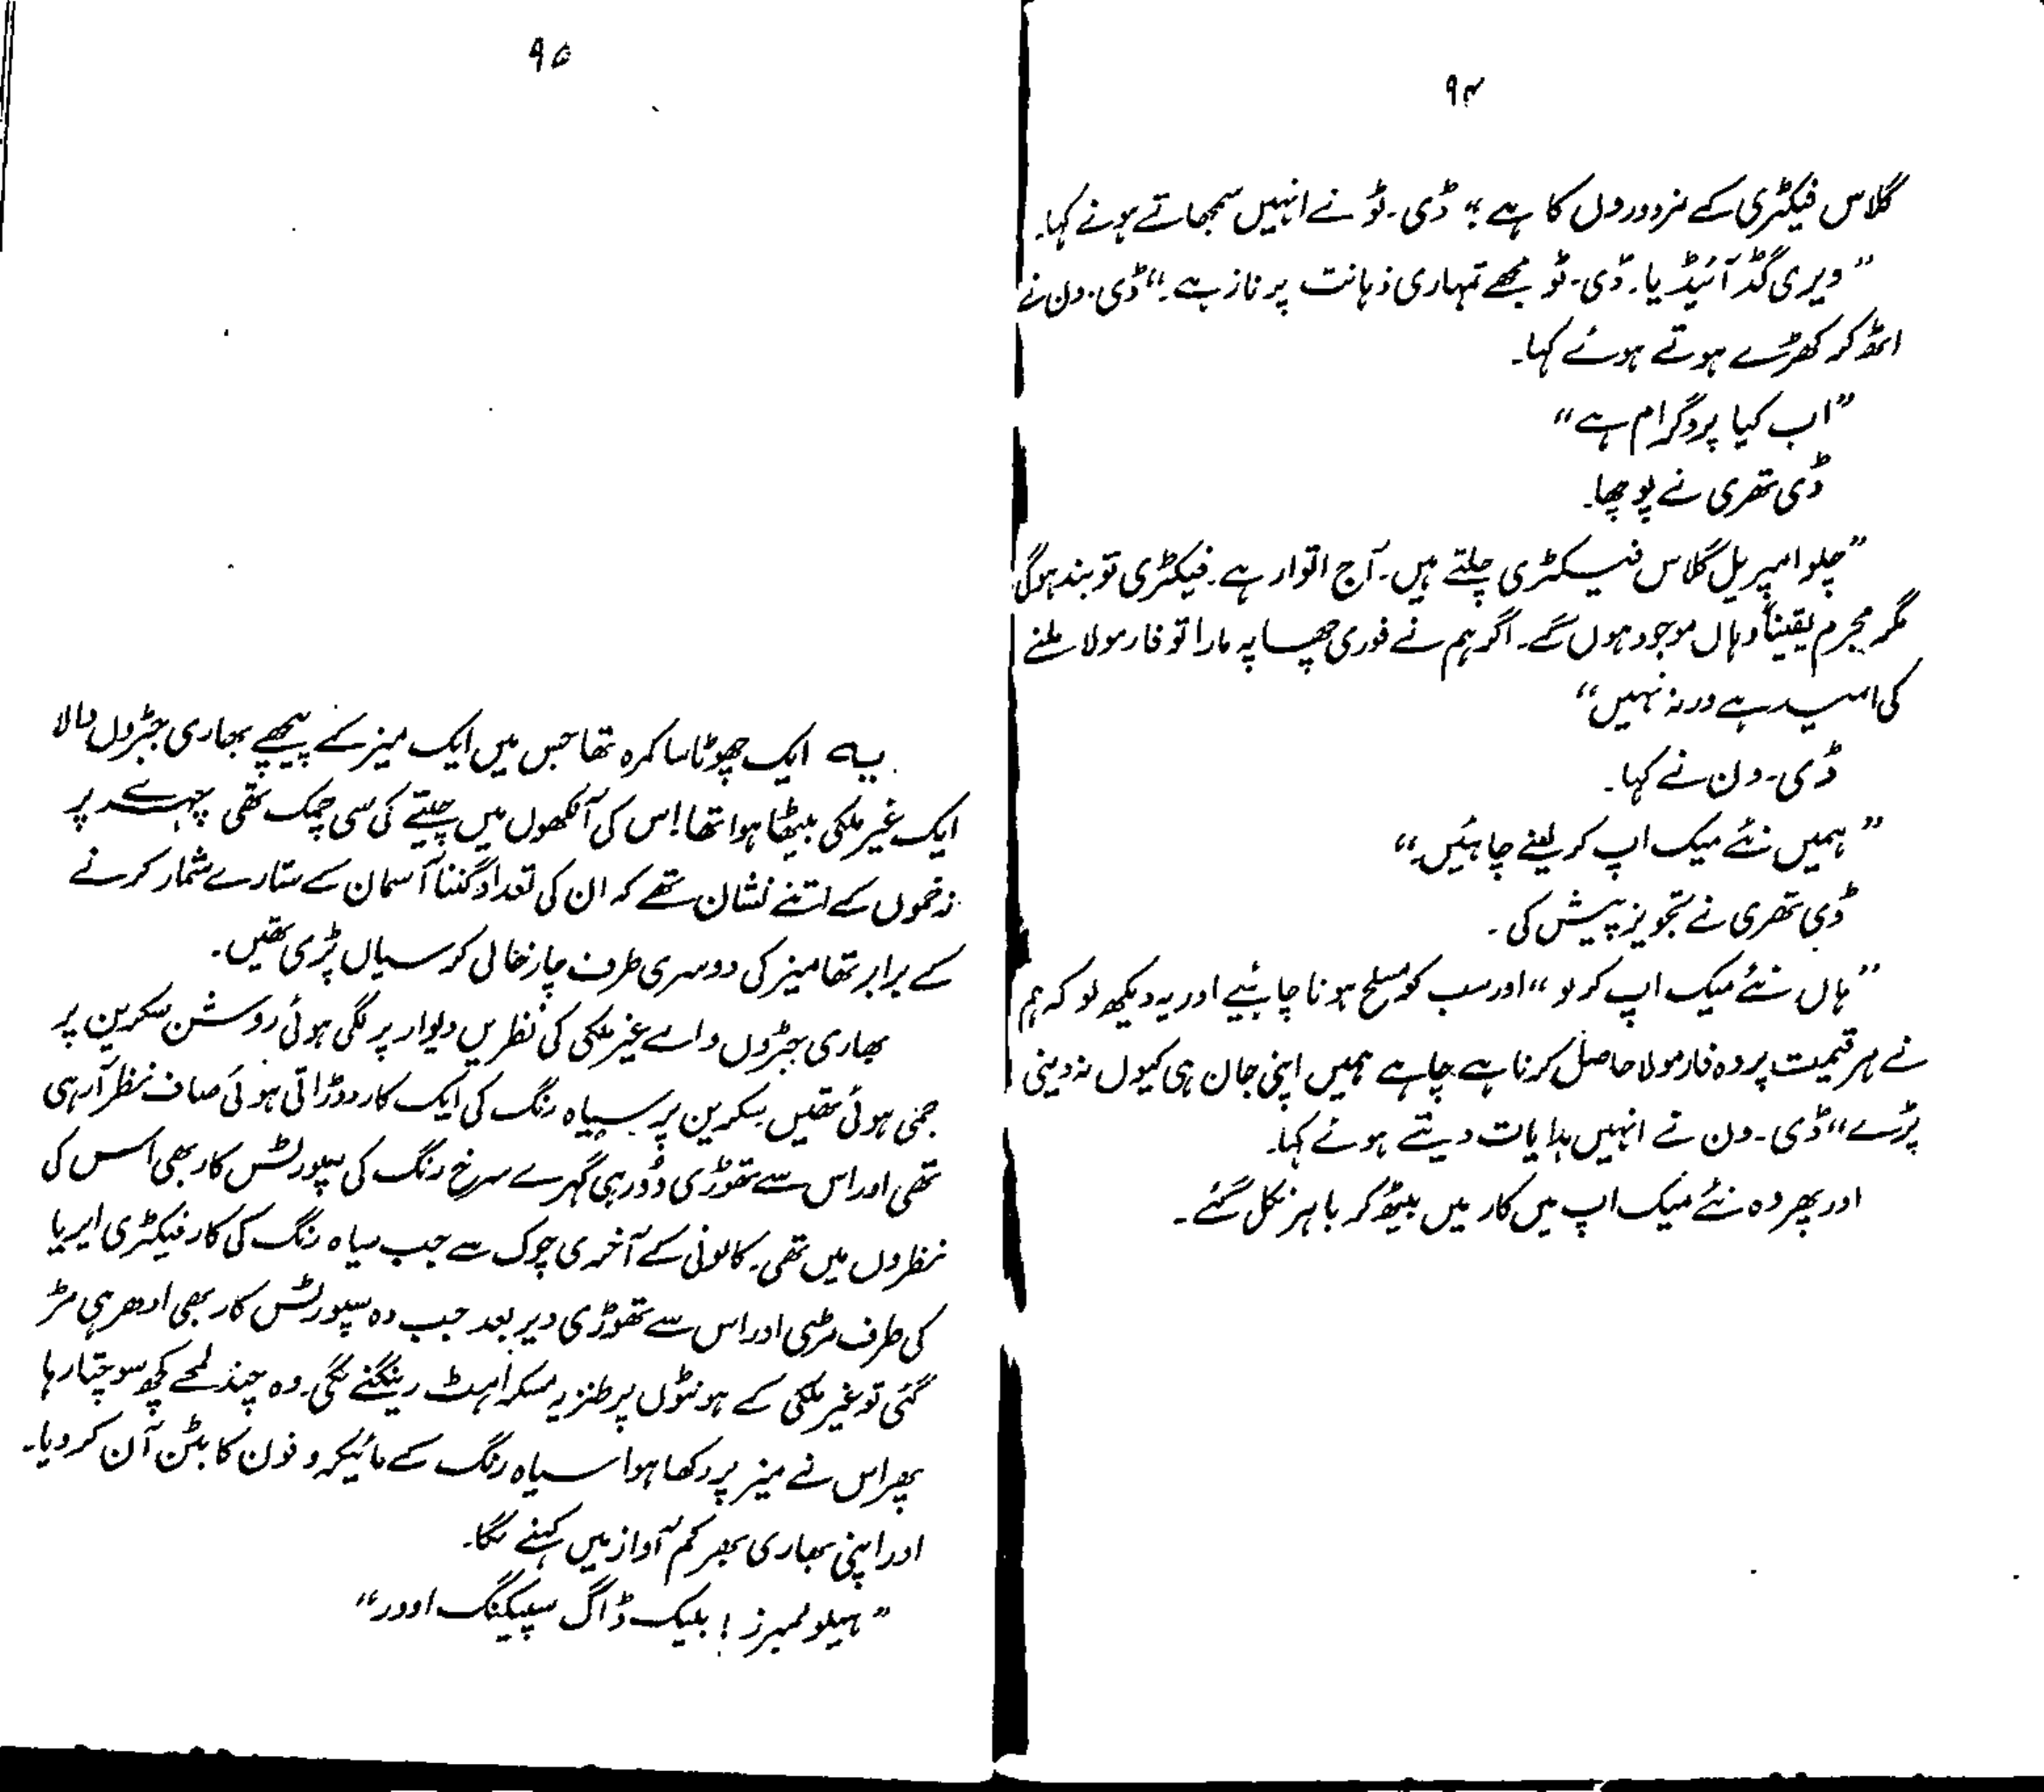 ۹۴
گلاس فیکٹری کے مزدوروں کا ہے۔“ ڈی۔ٹو نے انہیں سمجھاتے ہوئے کہا۔
”ویری گڈ آئیڈیا۔ ڈی۔ٹو مجھے تمہاری ذہانت پر ناز ہے۔“ ڈی۔ون نے
اٹھ کر کھڑے ہوتے ہوئے کہا۔
”اب کیا پروگرام ہے“
ڈی تھری نے پوچھا۔
”چلو امپریل گلاس فیکٹری چلتے ہیں۔ آج اتوار ہے۔ فیکٹری تو بند ہوگی
مگر مجرم یقیناً وہاں موجود ہوں گے۔ اگر ہم نے فوری چھاپہ مارا تو فارمولا ملنے
کی امید ہے ورنہ نہیں“
ڈی۔ون نے کہا۔
”ہمیں نئے میک اپ کر لینے چاہئیں۔“
ڈی تھری نے تجویز پیش کی۔
”ہاں نئے میک اپ کر لو“ اور سب کو مسلح ہونا چاہیئے اور یہ دیکھ لو کہ ہم
نے ہر قیمت پر وہ فارمولا حاصل کرنا ہے چاہے ہمیں اپنی جان ہی کیوں نہ دینی
پڑے“ ڈی۔ون نے انہیں ہدایات دیتے ہوئے کہا۔
اور پھر وہ نئے میک اپ میں کار میں بیٹھ کر باہر نکل گئے۔
۹۵
یہ ایک چھوٹا سا کمرہ تھا جس میں ایک میز کے پیچھے بھاری جبڑوں والا
ایک غیر ملکی بیٹھا ہوا تھا! اس کی آنکھوں میں چیتے کی سی چمک تھی چہرے پر
زخموں کے اتنے نشان تھے کہ ان کی تعداد گننا آسمان کے ستارے شمار کرنے
کے برابر تھا میز کی دوسری طرف چار خالی کرسیاں پڑی تھیں۔
بھاری جبڑوں والے غیر ملکی کی نظریں دیوار پر لگی ہوئی روشن سکرین پر
جمی ہوئی تھیں سکرین پر سیاہ رنگ کی ایک کار دوڑاتی ہوئی صاف نظر آ رہی
تھی اور اس سے تھوڑی دُور ہی گہرے سرخ رنگ کی سپورٹس کار بھی اس کی
نظروں میں تھی۔ کالونی کے آخری چوک سے جب سیاہ رنگ کی کار فیکٹری ایریا
کی طرف مڑی اور اس سے تھوڑی دیر بعد جب وہ سپورٹس کار بھی ادھر ہی مڑ
گئی تو غیر ملکی کے ہونٹوں پر طنزیہ مسکراہٹ رینگنے لگی۔ وہ چند لمحے کچھ سوچتا رہا
پھر اس نے میز پر رکھا ہوا سیاہ رنگ کے مائیکروفون کا بٹن آن کر دیا۔
اور اپنی بھاری بھرکم آواز میں کہنے لگا۔
”ہیلو نمبرز! بلیک ڈاگ سپیکنگ اوور“